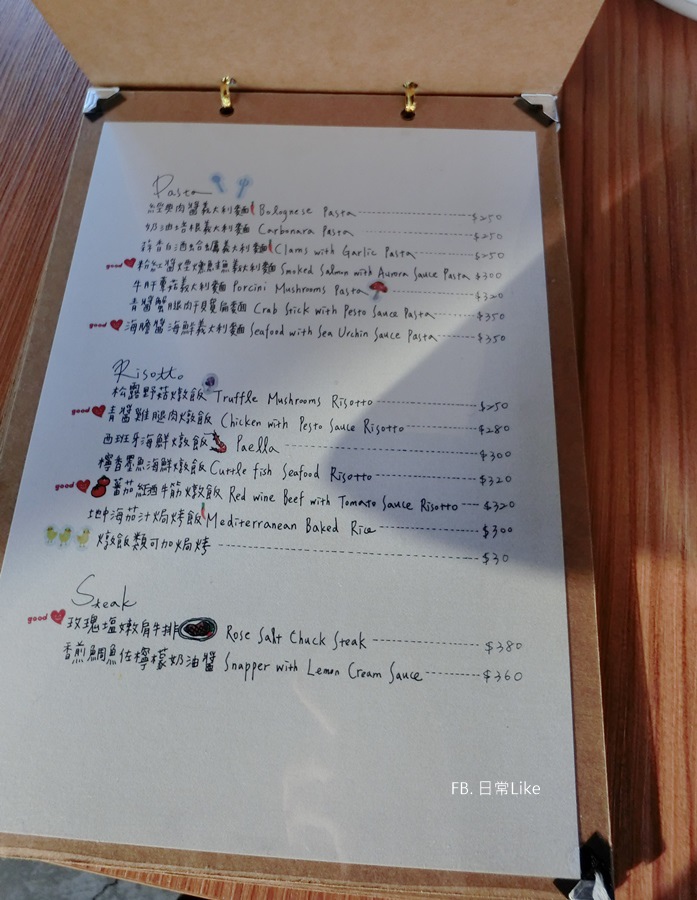 Pasta
經典肉醬義大利麵 Bolognese Pasta ---- $250
奶油培根義大利麵 Carbonara Pasta ---- $250
蒜香白酒蛤蠣義大利麵 Clams with Garlic Pasta ---- $250
good 粉紅醬煙燻鮭魚義大利麵 Smoked Salmon with Aurora Sauce Pasta $300
牛肝蕈菇義大利麵 Porcini Mushrooms Pasta ---- $320
青醬蟹腿肉干貝寬扁麵 Crab Stick with Pesto Sauce Pasta ---- $350
good 海膽醬海鮮義大利麵 Seafood with Sea Urchin Sauce Pasta ---- $350
Risotto
松露野菇燉飯 Truffle Mushrooms Risotto ---- $250
good 青醬雞腿肉燉飯 Chicken with Pesto Sauce Risotto ---- $280
西班牙海鮮燉飯 Paella ---- $300
檸香墨魚海鮮燉飯 Cuttle fish Seafood Risotto ---- $320
good 蕃茄紅酒牛筋燉飯 Red wine Beef with Tomato Sauce Risotto -- $320
地中海茄汁焗烤飯 Mediterranean Baked Rice ---- $300
燉飯類可加焗烤 ---- $30
Steak
good 玫瑰塩嫩肩牛排 Rose Salt Chuck Steak ---- $380
香煎鯛魚佐檸檬奶油醬 Snapper with Lemon Cream Sauce ---- $360
FB. 日常Like